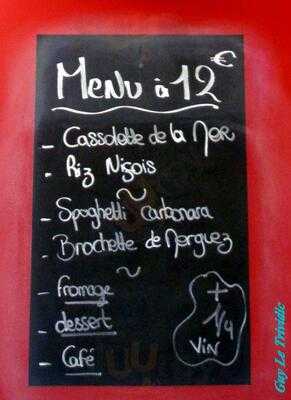 Menu à 12€
- Cassolette de la Mer
- Riz Niçois
~
- Spaghetti Carbonara
- Brochette de Merguez
~
- fromage
- dessert
- Café
+
1/4
Vin
Guy Le Trividic